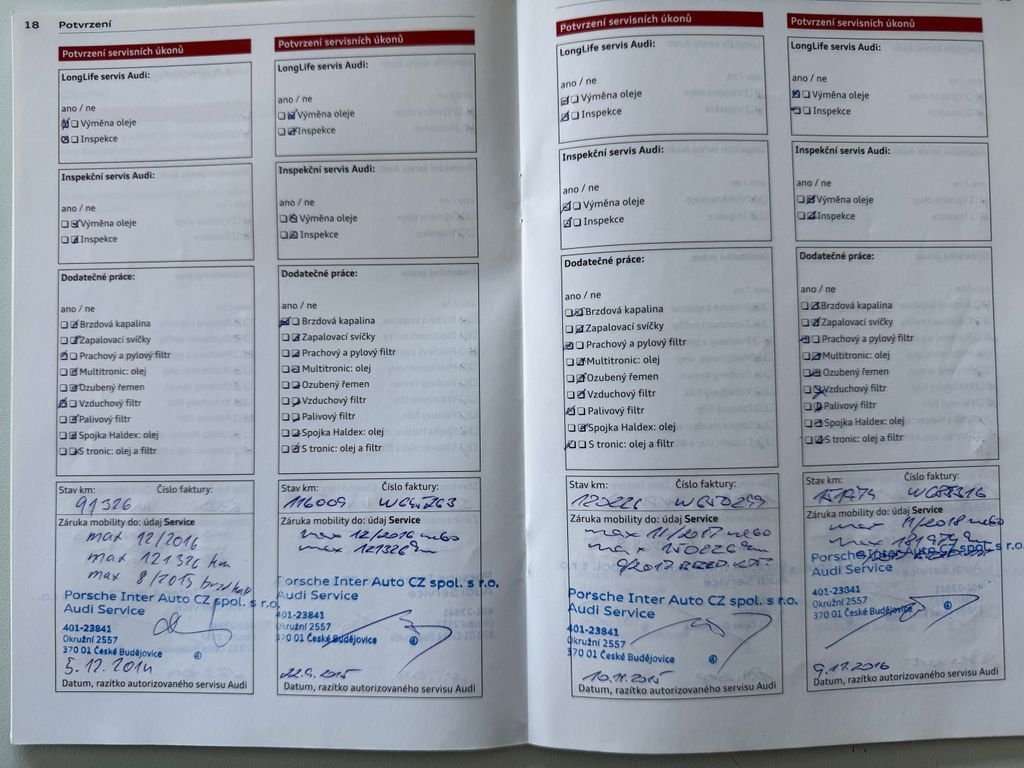 18 Potvrzení
Potvrzení servisních úkonů
LongLife servis Audi:
ano / ne
Výměna oleje
Inspekce
Inspekční servis Audi:
ano / ne
Výměna oleje
Inspekce
Dodatečné práce:
ano / ne
Brzdová kapalina
Zapalovací svíčky
Prachový a pylový filtr
Multitronic: olej
Ozubený řemen
Vzduchový filtr
Palivový filtr
Spojka Haldex: olej
S tronic: olej a filtr
Stav km: Číslo faktury:
91326
Záruka mobility do: údaj Service
max 12/2016
max 121326 km
max 8/2015
Porsche Inter Auto CZ spol. s r.o.
Audi Service
401-23841
Okružní 2557
370 01 České Budějovice
5.12.2014
Datum, razítko autorizovaného servisu Audi
Potvrzení servisních úkonů
LongLife servis Audi:
ano / ne
Výměna oleje
Inspekce
Inspekční servis Audi:
ano / ne
Výměna oleje
Inspekce
Dodatečné práce:
ano / ne
Brzdová kapalina
Zapalovací svíčky
Prachový a pylový filtr
Multitronic: olej
Ozubený řemen
Vzduchový filtr
Palivový filtr
Spojka Haldex: olej
S tronic: olej a filtr
Stav km: Číslo faktury:
116009
Záruka mobility do: údaj Service
max 12/2016 nebo
max 121326 km
Porsche Inter Auto CZ spol. s r.o.
Audi Service
401-23841
Okružní 2557
370 01 České Budějovice
4
22.9.2015
Datum, razítko autorizovaného servisu Audi
Potvrzení servisních úkonů
LongLife servis Audi:
ano / ne
Výměna oleje
Inspekce
Inspekční servis Audi:
ano / ne
Výměna oleje
Inspekce
Dodatečné práce:
ano / ne
Brzdová kapalina
Zapalovací svíčky
Prachový a pylový filtr
Multitronic: olej
Ozubený řemen
Vzduchový filtr
Palivový filtr
Spojka Haldex: olej
S tronic: olej a filtr
Stav km: Číslo faktury:
120226
Záruka mobility do: údaj Service
max 11/2017 nebo
max 150226 km
Porsche Inter Auto CZ spol. s r.o.
Audi Service
401-23841
Okružní 2557
370 01 České Budějovice
4
10.11.2015
Datum, razítko autorizovaného servisu Audi
Potvrzení servisních úkonů
LongLife servis Audi:
ano / ne
Výměna oleje
Inspekce
Inspekční servis Audi:
ano / ne
Výměna oleje
Inspekce
Dodatečné práce:
ano / ne
Brzdová kapalina
Zapalovací svíčky
Prachový a pylový filtr
Multitronic: olej
Ozubený řemen
Vzduchový filtr
Palivový filtr
Spojka Haldex: olej
S tronic: olej a filtr
Stav km: Číslo faktury:
Záruka mobility do: údaj Service
max 11/2018 nebo
max
Porsche Inter Auto CZ spol. s r.o.
Audi Service
401-23841
Okružní 2557
370 01 České Budějovice
4
9.11.2016
Datum, razítko autorizovaného servisu Audi